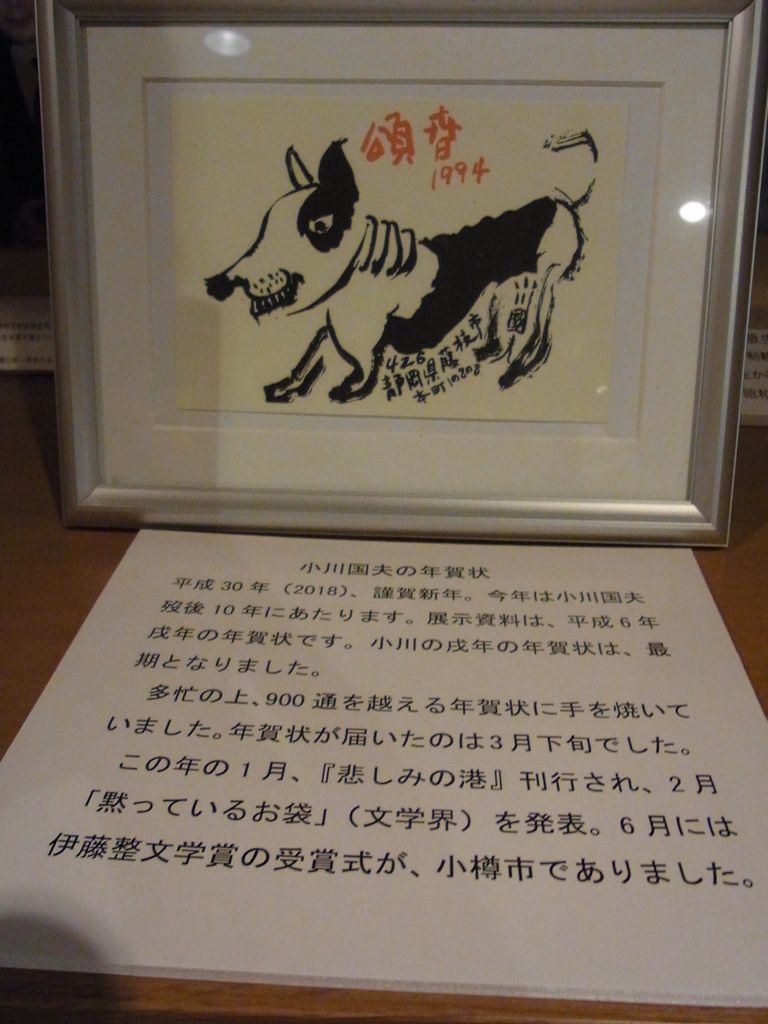 頌春
1994
426
静岡県藤枝市
本町
小川国夫の年賀状
平成30年(2018)、謹賀新年。今年は小川国夫
歿後10年にあたります。展示資料は、平成6年
戌年の年賀状です。小川の戌年の年賀状は、最
期となりました。
多忙の上、900通を越える年賀状に手を焼いて
いました。年賀状が届いたのは3月下旬でした。
この年の1月、『悲しみの港』刊行され、2月
「黙っているお袋」(文学界)を発表。6月には
伊藤整文学賞の受賞式が、小樽市でありました。